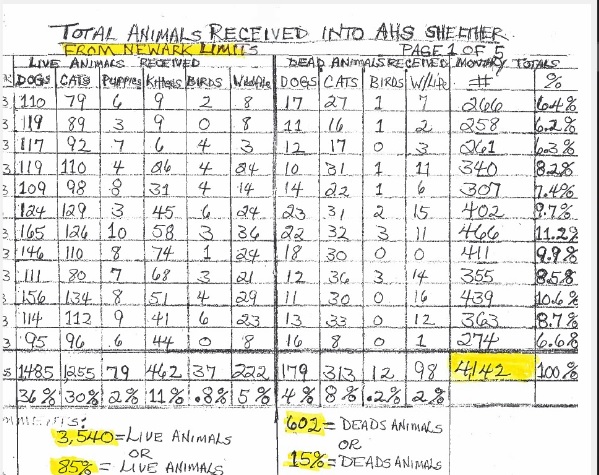 TOTAL ANIMALS RECEIVED INTO AHS SHELTHER
FROM NEWARK LIMITS PAGE 1 OF 5
LIVE ANIMALS RECEIVED DEAD ANIMALS RECEIVED MONTHLY TOTALS
DOGS CATS PUPPIES KITTENS BIRDS Wildlife DOGS CATS BIRDS W/LIFE # %
3 110 79 6 9 2 8 17 27 1 7 266 6.4%
3 119 89 3 9 0 8 11 16 1 2 258 6.2%
3 117 92 7 6 4 3 12 17 0 3 261 6.3%
3 119 110 4 26 4 24 10 31 1 11 340 8.2%
3 109 98 8 31 4 14 14 22 1 6 307 7.4%
124 129 3 45 6 24 23 31 2 15 402 9.7%
3 165 126 10 58 3 36 22 32 3 11 466 11.2%
3 146 110 8 74 1 24 18 30 0 0 411 9.9%
3 111 80 7 68 3 21 12 36 3 14 355 8.5%
3 156 134 8 51 4 29 11 30 0 16 439 10.6%
3 114 112 9 41 6 23 13 33 0 12 363 8.7%
3 95 96 6 44 0 8 16 8 0 1 274 6.6%
S 1485 1255 79 462 37 222 179 313 12 98 4142 100%
36% 30% 2% 11% .8% 5% 4% 8% .2% 2%
3,540 = LIVE ANIMALS 602 = DEADS ANIMALS
OR OR
85% = LIVE ANIMALS 15% = DEADS ANIMALS